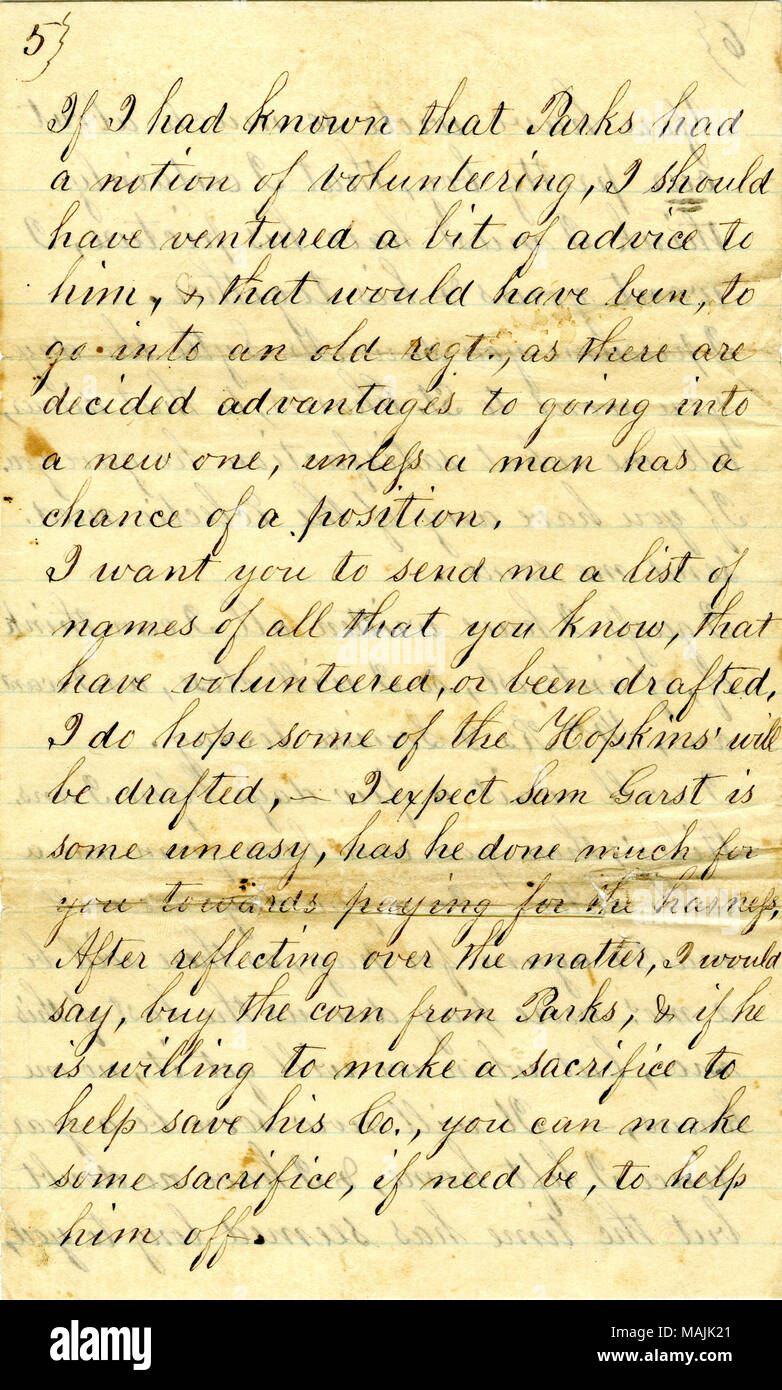 5}
If I had known that Parks had
a notion of volunteering, I should
have ventured a bit of advice to
him, & that would have been, to
go into an old regt., as there are
decided advantages to going into
a new one, unless a man has a
chance of a position.
I want you to send me a list of
names of all that you know, that
have volunteered, or been drafted,
I do hope some of the Hopkins' will
be drafted, — I expect Sam Garst is
some uneasy, has he done much for
you towards paying for the harness,
After reflecting over the matter, I would
say, buy the corn from Parks, & if he
is willing to make a sacrifice to
help save his Co., you can make
some sacrifice, if need be, to help
him off.
alamy
Image ID: MAJK21
www.alamy.com